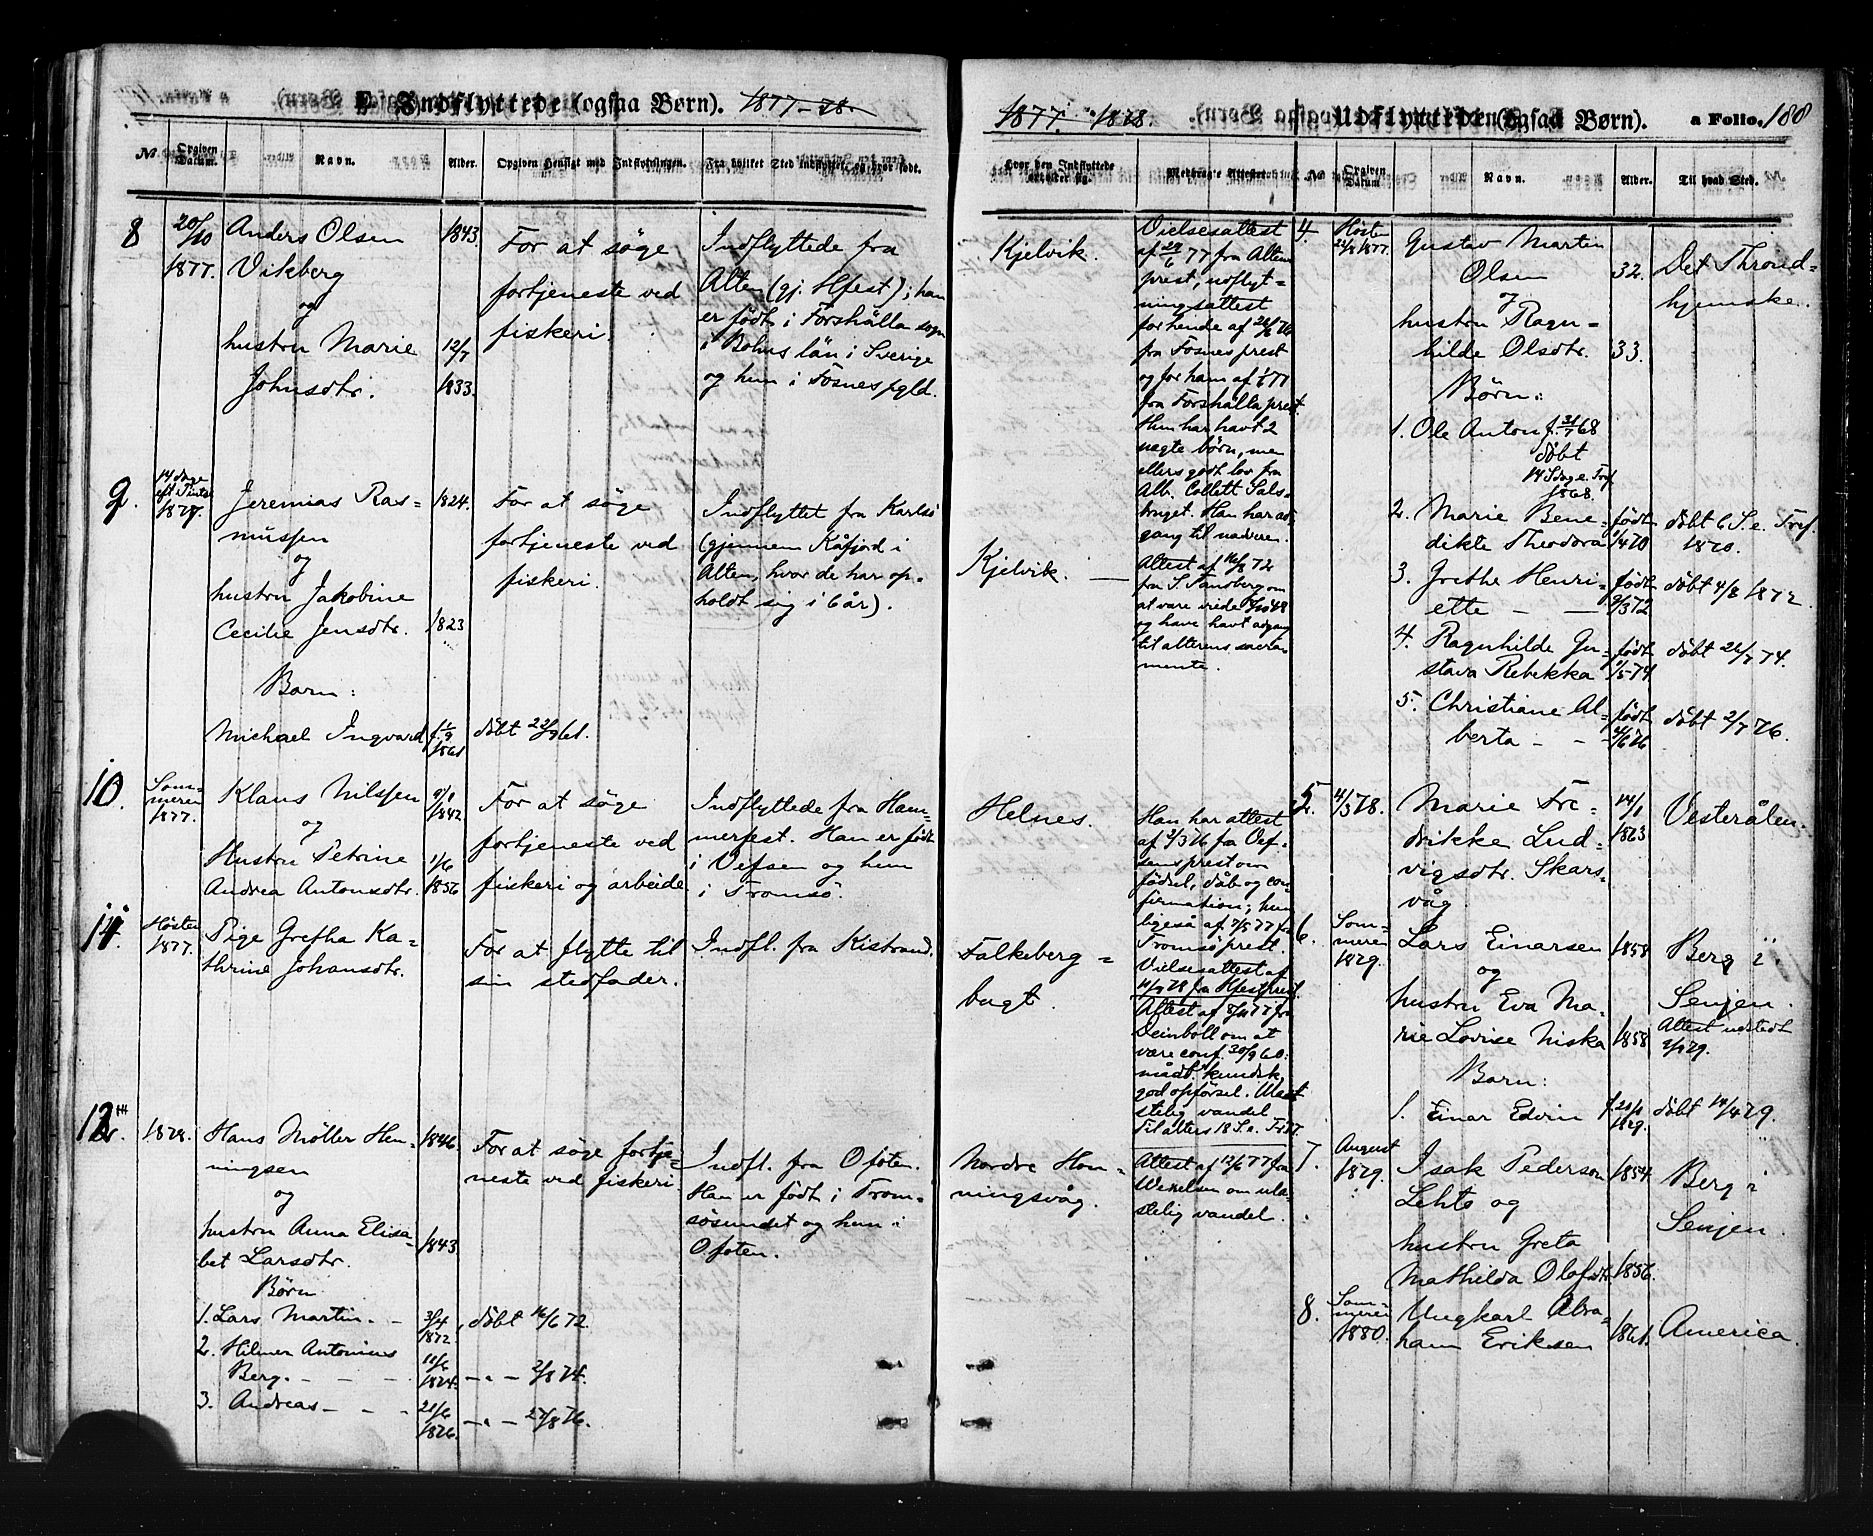 E. Indflyttede (ogsaa Børn). 1877-78.
No.
Opgiven Datum.
Navn.
Alder.
Opgiven Hensigt med Indflytningen.
Fra hvilket Sted indflyttet, og hvor født.
8
20/10
1877.
Anders Olsen
Vikberg
og
hustru Marie
Johnsdtr.
1843.
12/7
1833.
For at søge
fortjeneste ved
fiskeri.
Indflyttede fra
Alten (gj. Hfest); han
er født i Forshälla sogn
i Bohus län i Sverige
og hun i Fosnes pgld.
9.
14 dage
eft. Pintse
1877.
Jeremias Ras=
mussen
og
hustru Jakobine
Cecilie Jensdtr.
Barn:
Michael Ingvard
1824.
1823
f. 1/9
1861
For at søge
fortjeneste ved
fiskeri.
døbt 22/9 61.
Indflyttet fra Karlsø
(gjennem Kåfjord i
Alten, hvor de har op-
holdt sig i 6 år).
10.
Som-
meren
1877.
Klaus Nilssen
og
Hustru Petrine
Andrea Antonsdtr.
1842.
1/6
1856
For at søge
fortjeneste ved
fiskeri og arbeide
Indflyttede fra Ham-
merfest. Han er født
i Vefsen og hun
i Tromsö.
11.
Høsten
1877.
Pige Gretha Ka=
thrine Johansdtr.
For at flytte til
sin stedfader.
Indfl. fra Kistrand.
12.
1878.
Hans Møller Hen-
ningsen
og
hustru Anna Elisa-
bet Larsdtr.
Børn
1. Lars Martin. -
2. Hilmer Antonius
Berg. - - -
3. Andreas - - -
1846.
1843
3/4
1872
11/6
1874.
21/6
1876.
For at søge fortje-
neste ved fiskeri.
døbt 16/6 72.
- " - 2/8 74.
- " - 27/8 76.
Indfl. fra Ofoten.
Han er født i Trom-
søsundet og hun i
Ofoten.
1877. 1878.
Udflyttede (ogsaa Børn).
a Folio, 188
Hvor den Indflyttede
opholder sig.
Medbragte Attester.
No
Opgiven
Datum
Navn.
Alder.
Til hvad Sted.
Kjelvik.
Vielsesattest
af 24/6 77 fra Altens
prest, udflyt=
ningsattest
for hende af
fra Fosnes prest
og for ham af
fra Forshälla prest.
Hun har havt 2
uægte børn, men
ellers godt lov fra
Alb. Collett Sals-
bruget. Han har ad
gang til nadveren.
Kjelvik. -
Attest af 16/8 72
fra S. Tandberg om
at være viede
og have havt adgang
til alterens sacra-
mente.
Helnes.
Han har attest
af 2/3 76 fra Vef-
sens prest om
fødsel, dåb og con
firmation; hun
ligeså af 7/5 77 fra
Tromsø prest.
Vielsesattest af
fra Hfest prest.
Falkeberg=
bugt.
Attest af 8/4 77 fra
Deinboll om at
være conf. 30/9 60.
mådt. kundsk.
god opførsel.
stelig vandel
Til alters 18 S. e. Tr. 77.
Nordre Hon-
ningsvåg.
Attest af 12/6 77 fra
Wexelsen om ula-
stelig vandel.
4.
Høsten
1877.
Gustav Martin
Olsen
og
hustru Ragn=
hilde Olsdtr.
Børn:
1. Ole Anton f. 21/7 68
døbt
14 S dag e. Tref
1868.
2. Marie Bene-
dikte Theodora
3. Grethe Henri-
ette - -
4. Ragnhilde Gu-
stava Rebekka
5. Christiane Al-
berta - -
32.
33.
født
1/4 70
født
9/3 72
født
1/5 74
født
4/6 76
Det Thrond=
hjemske.
døbt 6 S. e. Tref.
1870.
døbt 4/8 1872.
døbt 26/7 74.
døbt 2/7 76.
5.
4/3 78.
Marie Fre
drikke Lud-
vigsdtr. Skars-
våg.
14/1
1863
Vesterålen.
6.
Som-
meren
1879.
Lars Einarsen
og
hustru Eva Ma-
rie Lovise Niska
Barn:
1. Einar Edvin
1858
1858
1879.
Berg i
Senjen.
Attest udstedt
døbt 14/4 79.
7.
August
1879.
Isak Pederson
Lehto og
hustru Greta
Mathilda Olofsdtr.
1854.
1856.
Berg i
Senjen.
8.
Som-
meren
1880.
Ungkarl Abra-
ham Eriksen
1861.
America.